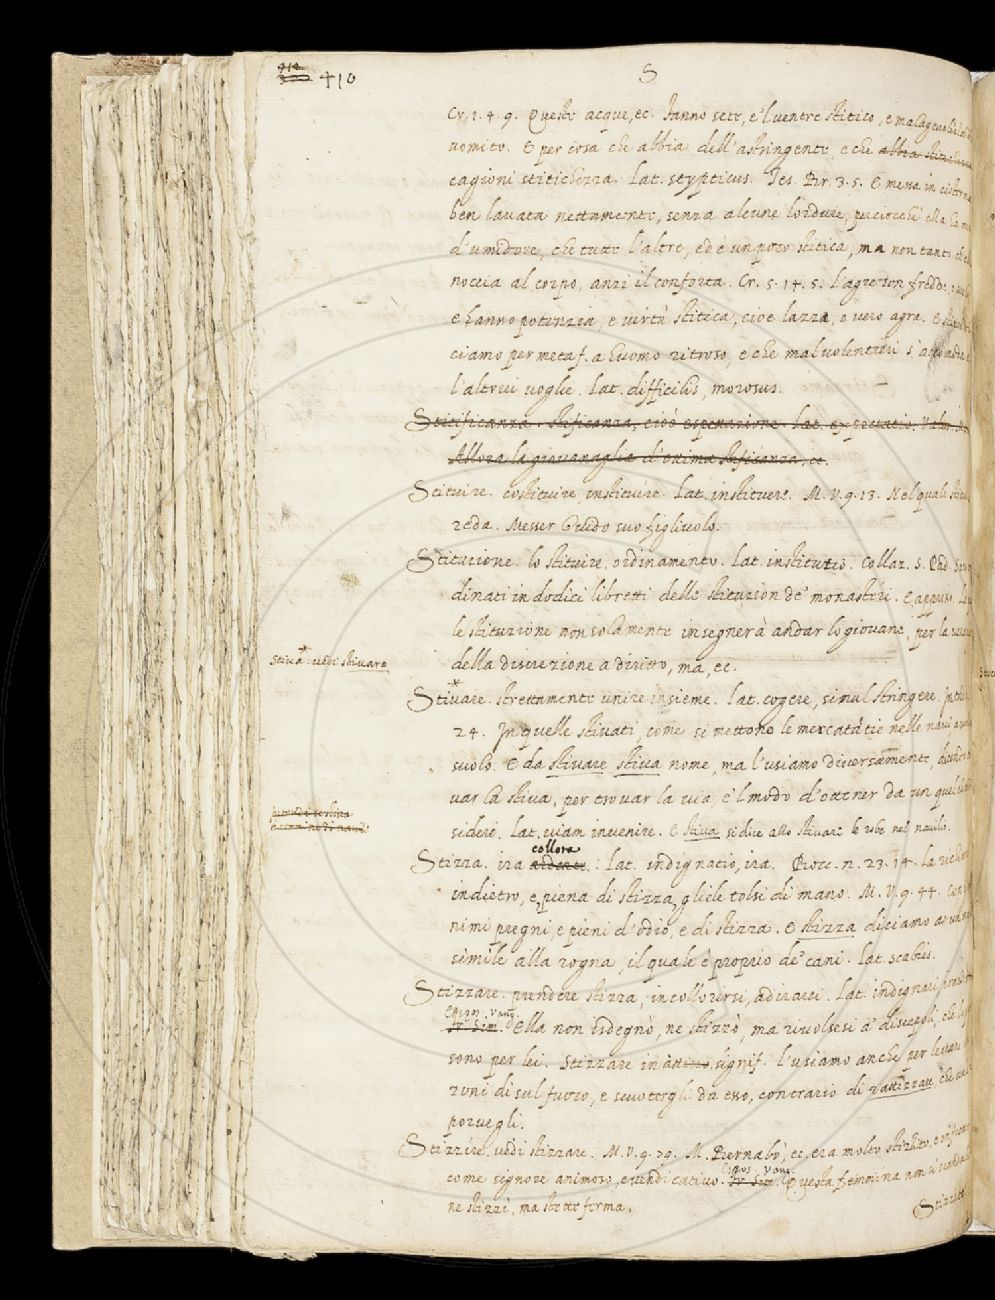 410
S
Cr. 2. 4. 9. Queste acque, ec. fanno sete, e 'l ventre stitico, e malagevole
vomito. E per cosa che abbia dell'astringente, e che abbia stitichezza
cagioni stitichezza. Lat. stypticus. Tes. Pov. 3. 5. E messa in cisterna
ben lavata nettamente, senza alcune lordure, perciocchè ella ha
d'umidore, che tutte l'altre, ed è un poco stitica, ma non tanto che
noccia al corpo, anzi il conforta. Cr. 5. 14. 5. l'agre son fredde, e
e hanno potenzia, e virtù stitica, cioè lazza, o vero agra. E stitico
ciamo per metaf. a huomo ritroso, e che malvolentieri s'accomoda
l'altrui voglie. Lat. difficilis, morosus.
Stitificanza. stificanza, cioè esperazione. Lat. expectatio.
Allora la giovanaglia d'onima stificanza, ec.
Stituire. costituire instituire. Lat. instituere. M. V. 9. 13. Nel quale
reda. Messer Guido suo figliuolo.
Stituzione. lo stituire. ordinamento. Lat. institutio. Collaz. S. Pad.
dinati in dodici libretti delle stituzion de' monasteri. E appresso.
le stituzione non solamente insegnerà andar lo giovane, per la
della discrezione a diritto, ma, ec.
Stiva. vedi stivare
Stivare. strettamente unire insieme. Lat. cogere, simul stringere.
24. In quelle stivati, come si mettono le mercatãtie nelle navi
suolo. E da stivare stiva nome, ma l'usiamo diversamente, dicendo
var la stiva, per trovar la via, e 'l modo d'ottener da un quel
sideri. Lat. viam invenire. E stiva si dice allo stivare le robe nel navilio.
collora
Stizza. ira ardente. : Lat. indignatio, ira. Bocc. n. 23. 14. la
indietro, e piena di stizza gliele tolsi di mano. M. V. 9. 44. Con
nimi pregni, e pieni d'odio, e di stizza. E stizza diciamo a
simile alla rogna, il quale è proprio de' cani. Lat. scabies.
Stizzare. prendere stizza, incollorirsi, adirarsi. Lat. indignari
Espos. Vang.
Fr. Sim. Ella non isdegnò, ne stizzò, ma rivolsesi a' discepoli, che
sono per lei. Stizzare in attivo signif. l'usiamo anche per levare
zoni di sul fuoco, e scuotergli da esso, contrario di rattizzare, che
porvegli.
Stizzire. vedi stizzare. M. V. 9. 79. M. Bernabò, ec, era molto stizzito,
Espos. Vang.
come signore animoso, e vendicativo. Fr. Sim. Questa femmina non si
ne stizzì, ma stette ferma.